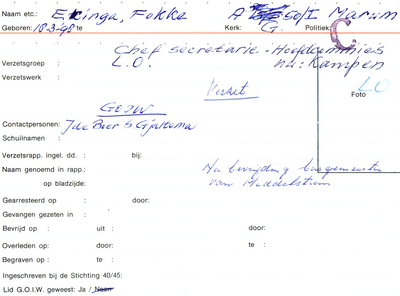 Naam etc.: Ekinga, Fokke A 50/I Marum
Geboren: 18-3-98 te Kerk: G. Politiek:
C.
Chef secretarie - Hoofdcommies
Verzetsgroep : L.O. na: Kampen
Verzetswerk :
Verzet
LO
Foto
GEJW
Contactpersonen: J de Boer S Gjaltema
Schuilnamen :
Verzetsrapp. ingel. dd. : bij:
Naam genoemd in rapp.: Na bevrijding burgemeester
op bladzijde: van Middelstum
Gearresteerd op : door:
Gevangen gezeten in :
Bevrijd op : uit : door:
Overleden op: door: te :
Begraven op : te :
Ingeschreven bij de Stichting 40/45:
Lid G.O.I.W. geweest: Ja / Neen